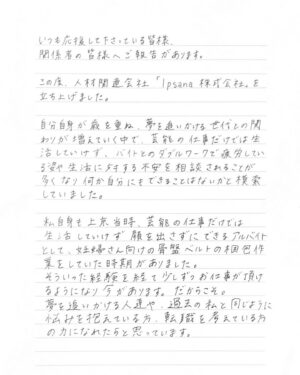 いつも応援して下さっている皆様、
関係者の皆様へご報告があります。
この度、人材関連会社「Ipsana 株式会社」を
立ち上げました。
自分自身が歳を重ね、夢を追いかける世代との関
わりが増えていく中で、芸能の仕事だけでは生
活していけず、バイトとのダブルワークで疲労してい
る姿や生活に対する不安を相談されることが
多くなり何か自分にもできることはないかと模索
していました。
私自身も上京当時、芸能の仕事だけでは
生活していけず 顔を出さずにできるアルバイト
として、妊婦さん向けの骨盤ベルトの梱包作
業をしていた時期がありました。
そういった経験を経て少しずつお仕事が頂け
るようになり今があります。だからこそ。
夢を追いかける人達や、過去の私と同じように
悩みを抱えている方、転職を考えている方
の力になれたらと思っています。